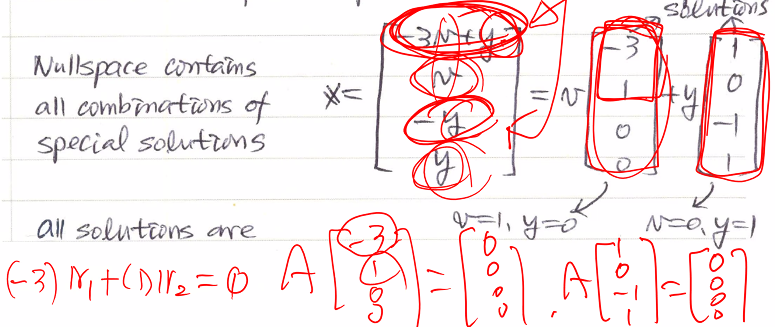 solutions
Nullspace contains
all combinations of
special solutions
x = [-3v+y, v, -y, y] = v [-3, 1, 0, 0] + y [1, 0, -1, 1]
all solutions are
v=1, y=0
v=0, y=1
(-3) v₁ + (1) v₂ = 0 A [-3, 1, 0, 0] = [0, 0, 0, 0] , A [1, 0, -1, 1] = [0, 0, 0, 0]